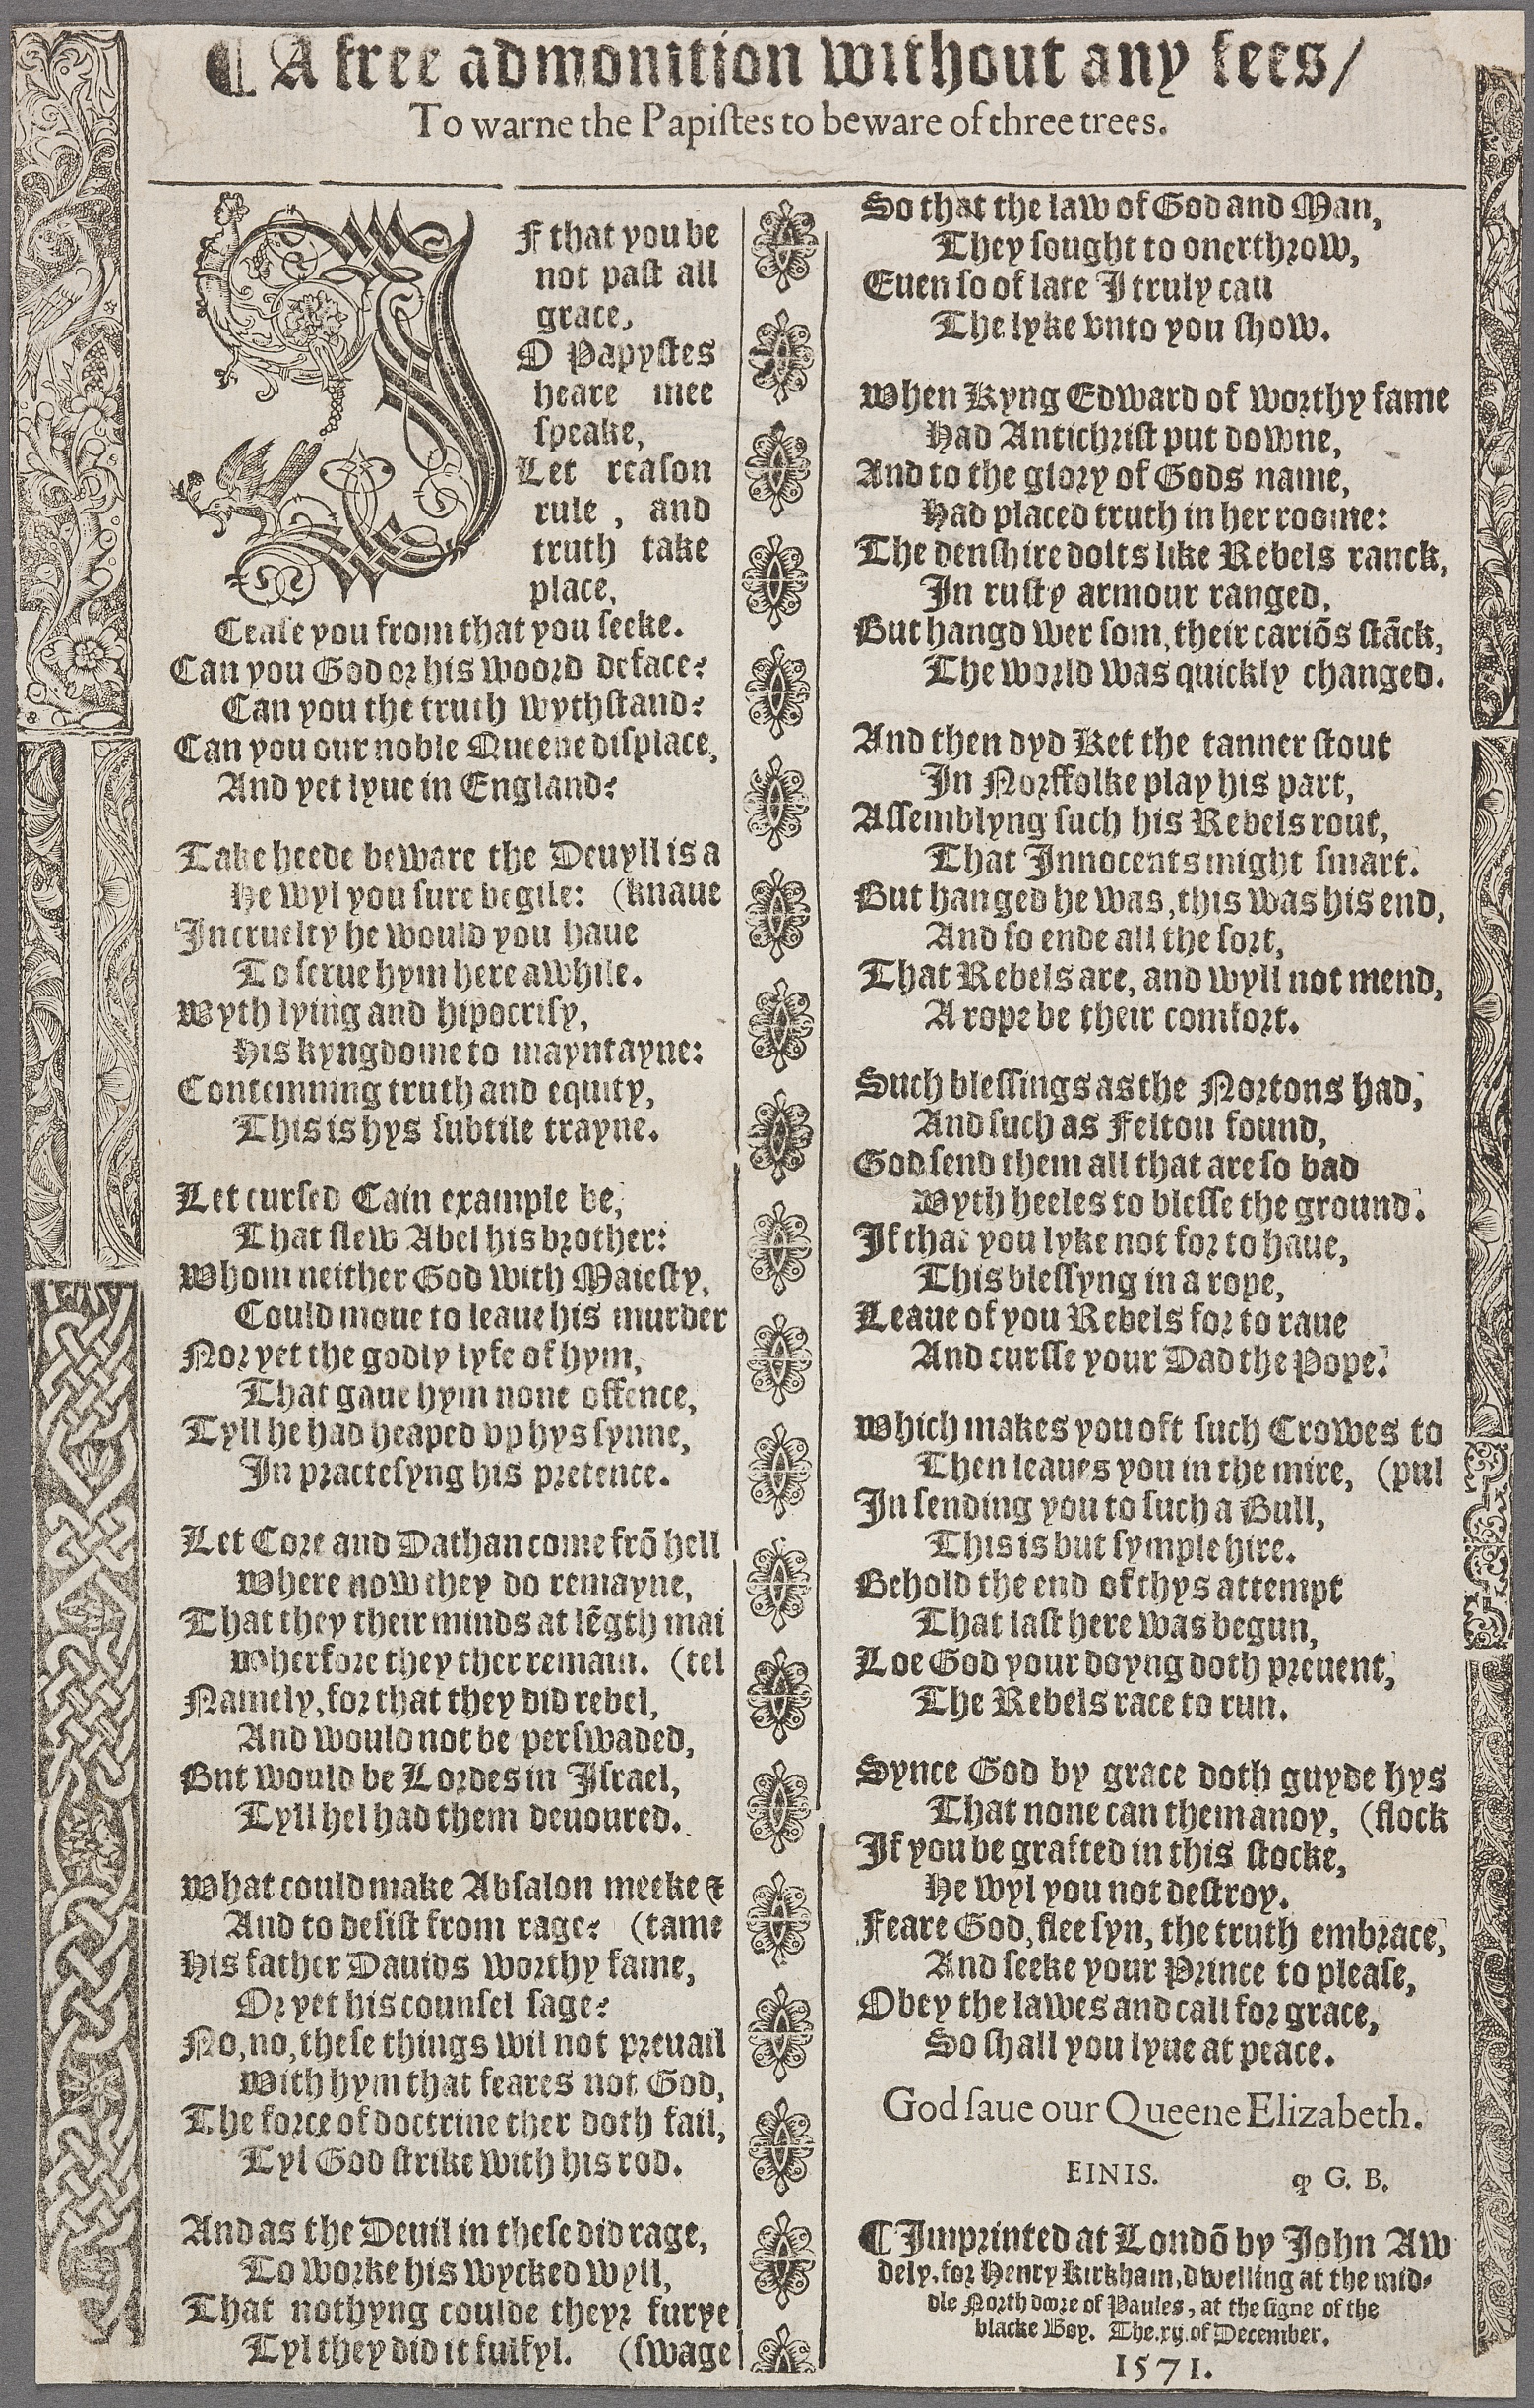 ¶ A free admonition without any fees/
To warne the Papiſtes to beware of three trees.
IF that you be
not paſt all
grace,
O Papyſtes
heare mee
ſpeake,
Let reaſon
rule , and
truth take
place,
Ceaſe you from that you ſeeke.
Can you God or his woord deface?
Can you the truth wythſtand?
Can you our noble Queene diſplace,
And yet lyue in England?
Take heede beware the Deuyll is a
He wyl you ſure begile: (knaue
In cruelty he would you haue
To ſerue hym here awhile.
Wyth lying and hipocriſy,
His kyngdome to mayntayne:
Contemning truth and equity,
This is hys ſubtile trayne.
Let curſed Cain example be,
That ſlew Abel his brother:
Whom neither God with Maieſty,
Could moue to leaue his murder
Nor yet the godly lyfe of hym,
That gaue hym none offence,
Tyll he had heaped vp hys ſynne,
In practeſyng his pretence.
Let Core and Dathan come frō hell
Where now they do remayne,
That they their minds at lēgth mai
Wherfore they ther remain. (tel
Namely, for that they did rebel,
And would not be perſwaded,
But would be Lordes in Iſrael,
Tyll hel had them deuoured.
What could make Abſalon meeke &
And to deſiſt from rage? (tame
His father Dauids worthy fame,
Or yet his counſel ſage?
No, no, theſe things wil not preuail
With hym that feares not God,
The force of doctrine ther doth fail,
Tyl God ſtrike with his rod.
And as the Deuil in theſe did rage,
To worke his wycked wyll,
That nothyng coulde theyr furye
Tyl they did it fulfyl. (ſwage
So that the law of God and Man,
They ſought to onerthrow,
Euen ſo of late I truly can
The lyke vnto you ſhow.
When Kyng Edward of worthy fame
Had Antichriſt put downe,
And to the glory of Gods name,
Had placed truth in her roome:
The denſhire dolts like Rebels ranck,
In ruſty armour ranged,
But hangd wer ſom, their cariōs ſtāck,
The world was quickly changed.
And then dyd Ket the tanner ſtout
In Norffolke play his part,
Aſſemblyng ſuch his Rebels rout,
That Innocents might ſmart.
But hanged he was, this was his end,
And ſo ende all the ſort,
That Rebels are, and wyll not mend,
A rope be their comfort.
Such bleſſings as the Nortons had,
And ſuch as Felton found,
God ſend them all that are ſo bad
Wyth heeles to bleſſe the ground.
If that you lyke not for to haue,
This bleſſyng in a rope,
Leaue of you Rebels for to raue
And curſſe your Dad the Pope.
Which makes you oft ſuch Crowes to
Then leaues you in the mire, (pul
In ſending you to ſuch a Bull,
This is but ſymple hire.
Behold the end of thys attempt
That laſt here was begun,
Loe God your doyng doth preuent,
The Rebels race to run.
Synce God by grace doth guyde hys
That none can them anoy, (flock
If you be grafted in this ſtocke,
He wyl you not deſtroy.
Feare God, flee ſyn, the truth embrace,
And ſeeke your Prince to pleaſe,
Obey the lawes and call for grace,
So ſhall you lyue at peace.
God ſaue our Queene Elizabeth.
EINIS. ꝙ G. B.
¶ Imprinted at Londō by John Aw
dely, for Henry Kirkham, dwelling at the mid-
dle North doore of Paules, at the ſigne of the
blacke Boy. The.xij.of December.
1571.